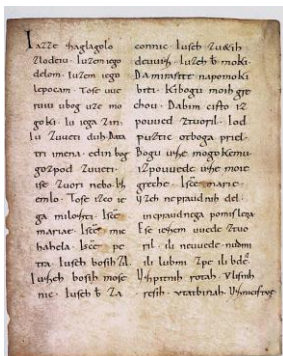 Iazze zaglagolo
zlodeiu. Iuzem iego
delom. Iuzem iego
lepocam. Tose uue
ruiu ubog uze mo
goki. Iu iega zin.
Iu zuueti duh. Data
tri imena. edin bog
gozpod zuueti.
ise zuori nebo. Ise
emlo. Tose izco ie
ga milosti. Iscē
mariae. Iscē mic
hahela. Iscē pe
tra. Iuseh bosih zil.
Iuseh bosih mose
nic. Iuseh b za
connic. Iuseh zuetih
deuuiz. Iuzeh b moki.
Da mi raste napomoki
biti. Kibogu moih gre
chou. Dabim cisto iz
pouued ztuoril. Iod
puztic otboga priel.
Bogu uze mogokemu
izpouuede uze moie
greche. Iscē marie.
uzeh nepraudnih del.
inepraudnega pomislega
Ese iezem uuede ztuo
ril. ili neuuede. nudmi
ili lubmi zpe ili bdē.
Uzpitnih rotah. Vlisnih
resih. vtatbinah. Uznicistve